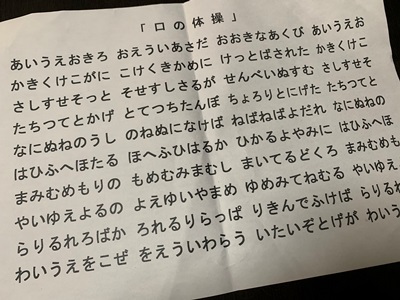 「口の体操」
あいうえおきろ おえういあさだ おおきなあくび あいうえお
かきくけこがに こけくきかめに けっとばされた かきくけこ
さしすせそっと そせすしさるが せんべいぬすむ さしすせそ
たちつてとかげ とてつちたんぼ ちょろりとにげた たちつてと
なにぬねのうし のねぬになけば ねばねばよだれ なにぬねの
はひふへほたる ほへふひはるか ひかるよやみに はひふへほ
まみむめもりの もめむみまむし まいてるどくろ まみむめも
やいゆえよるの よえゆいやまめ ゆめみてねむる やいゆえ
らりるれろばか ろれるりらっぱ りきんでふけば らりるれ
わいうえをこぜ をえういわらう いたいぞとげが わいう